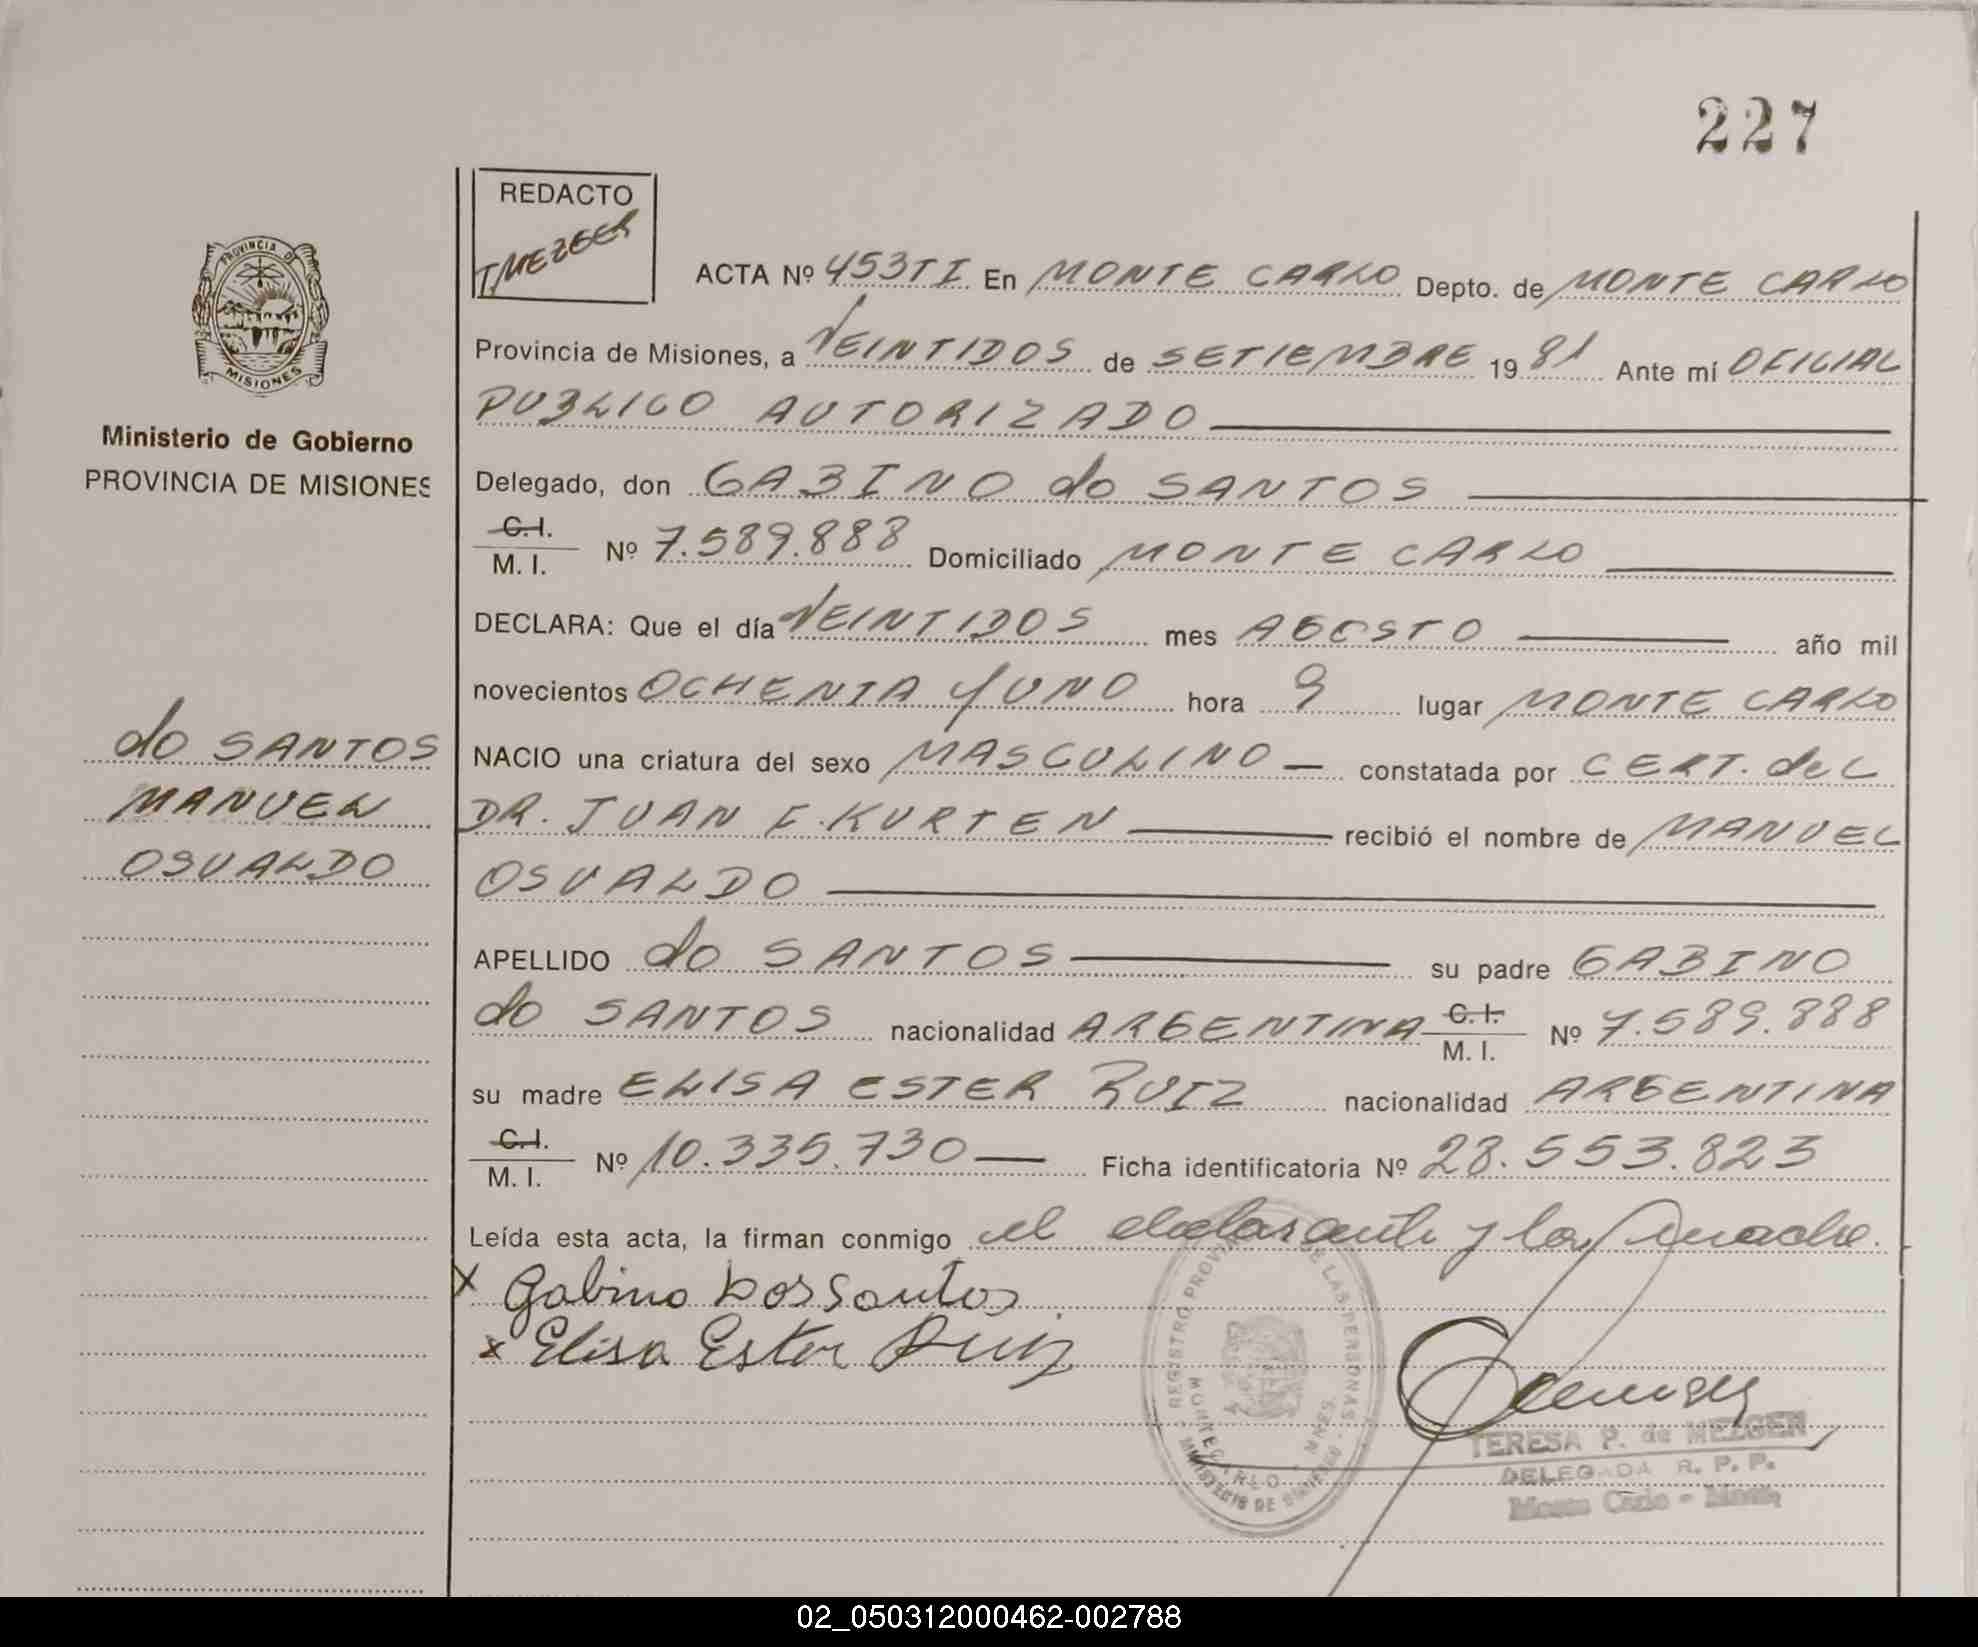 227
REDACTO
T, MEZGER
PROVINCIA D
MISIONES
Ministerio de Gobierno
PROVINCIA DE MISIONES
do SANTOS
MANUEL
OSVALDO
ACTA Nº 453 TI En MONTE CARLO Depto. de MONTE CARLO
Provincia de Misiones, a VEINTIDOS de SETIEMBRE 19 81 Ante mí OFICIAL
PUBLICO AUTORIZADO
Delegado, don GABINO do SANTOS
C.I.
M. I. Nº 7.589.888 Domiciliado MONTE CARLO
DECLARA: Que el día VEINTIDOS mes AGOSTO año mil
novecientos OCHENTA Y UNO hora 9 lugar MONTE CARLO
NACIO una criatura del sexo MASCULINO constatada por CERT. del
DR. JUAN E. KURTEN recibió el nombre de MANUEL
OSVALDO
APELLIDO do SANTOS su padre GABINO
do SANTOS nacionalidad ARGENTINA C.I. M. I. Nº 7.589.888
su madre ELISA ESTER RUIZ nacionalidad ARGENTINA
C.I.
M. I. Nº 10.335.730 Ficha identificatoria Nº 28.553.823
Leída esta acta, la firman conmigo el declarante y la madre.
x Gabino Dos Santos
x Elisa Ester Ruiz
REGISTRO PROVINCIAL DE LAS PERSONAS
MONTECARLO - MNES.
MINISTERIO DE GOBIERNO
TERESA P. de MEZGER
DELEGADA R. P. P.
Monte Carlo - Mnes.
02_050312000462-002788